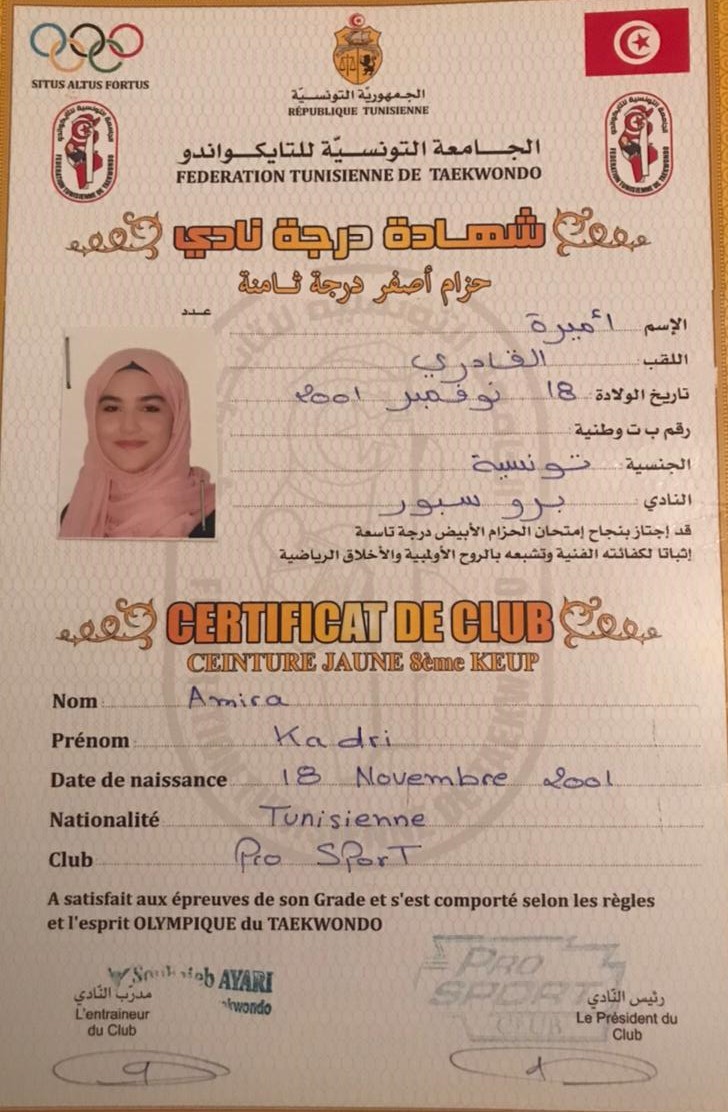 SITUS ALTUS FORTUS
الجمهورية التونسية
RÉPUBLIQUE TUNISIENNE
الجامعة التونسية للتايكواندو
FEDERATION TUNISIENNE DE TAEKWONDO
شهادة درجة نادي
حزام أصفر درجة ثامنة
عدد
الإسم أميرة
اللقب القادري
تاريخ الولادة 18 نوفمبر 2001
رقم ب ت وطنية
الجنسية تونسية
النادي برو سبور
قد إجتاز بنجاح إمتحان الحزام الأبيض درجة تاسعة
إثباتا لكفائته الفنية وتشبعه بالروح الأولمبية والأخلاق الرياضية
CERTIFICAT DE CLUB
CEINTURE JAUNE 8ème KEUP
Nom Amira
Prénom Kadri
Date de naissance 18 Novembre 2001
Nationalité Tunisienne
Club Pro Sport
A satisfait aux épreuves de son Grade et s'est comporté selon les règles
et l'esprit OLYMPIQUE du TAEKWONDO
AYARI
مدرب النادي
L'entraineur
du Club
PRO
SPORT
CLUB
رئيس النادي
Le Président du
Club